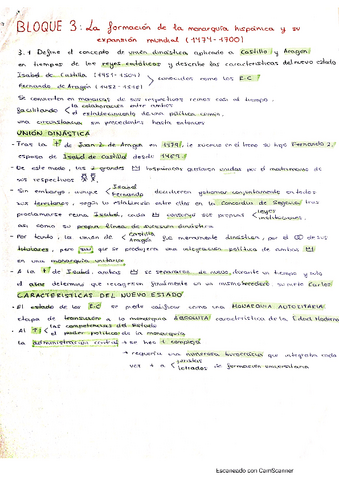 BLOQUE 3: La formación de la monarquía hispánica y su
expansión mundial (1474-1700)
3.1 Define el concepto de unión dinástica aplicado a Castilla y Aragón
en tiempos de los reyes católicos y describe las características del nuevo estado
Isabel de Castilla (1451-1504)
Fernando de Aragón (1452-1516)
conocidos como los
Se convierten en monarcas de sus respectivos reinos casi al tiempo,
facilitando la colaboración entre ambos
el establecimiento de una política común.
una circunstancia sin precedentes hasta entonces
UNIÓN DINÁSTICA
- Tras la de Juan 2 de Aragón en 1479, le sucede en el trono su hijo Fernando 2,
esposo de Isabel de Castilla desde 1469.
- De este modo, los 2 grandes hispánicos quedaban unidos por el matrimonio de
sus respectivos
- Sin embargo, aunque Isabel
Fernando
decidieron gobernar conjuntamente en todos
sus territorios, según lo establecido entre ellos en la Concordia de Segovia tras
proclamarse reina Isabel, cada conservó sus propias leyes
instituciones,
así como su propia línea de sucesión dinástica
- Por tanto, la unión de Castilla
Aragón
fue meramente dinástica, por el de sus
titulares, pero que se produjera una integración política de ambos
en una monarquía unitaria
- A la de Isabel, ambos se separaron de nuevo, durante un tiempo y solo
el azar determinó que recayesen finalmente en un mismo heredero, su nieto Carlos
CARACTERÍSTICAS DEL NUEVO ESTADO
- El estado de los se puede calificar como una MONARQUÍA AUTORITARIA:
etapa de transición a la monarquía ABSOLUTA característica de la Edad Moderna
- Al las competencias del Estado
el poder político de la monarquía
la administración central se hizo + compleja
→ requería una numerosa burocracia que integraba cada
vez + a
letrados de formación universitaria
Escaneado con CamScanner